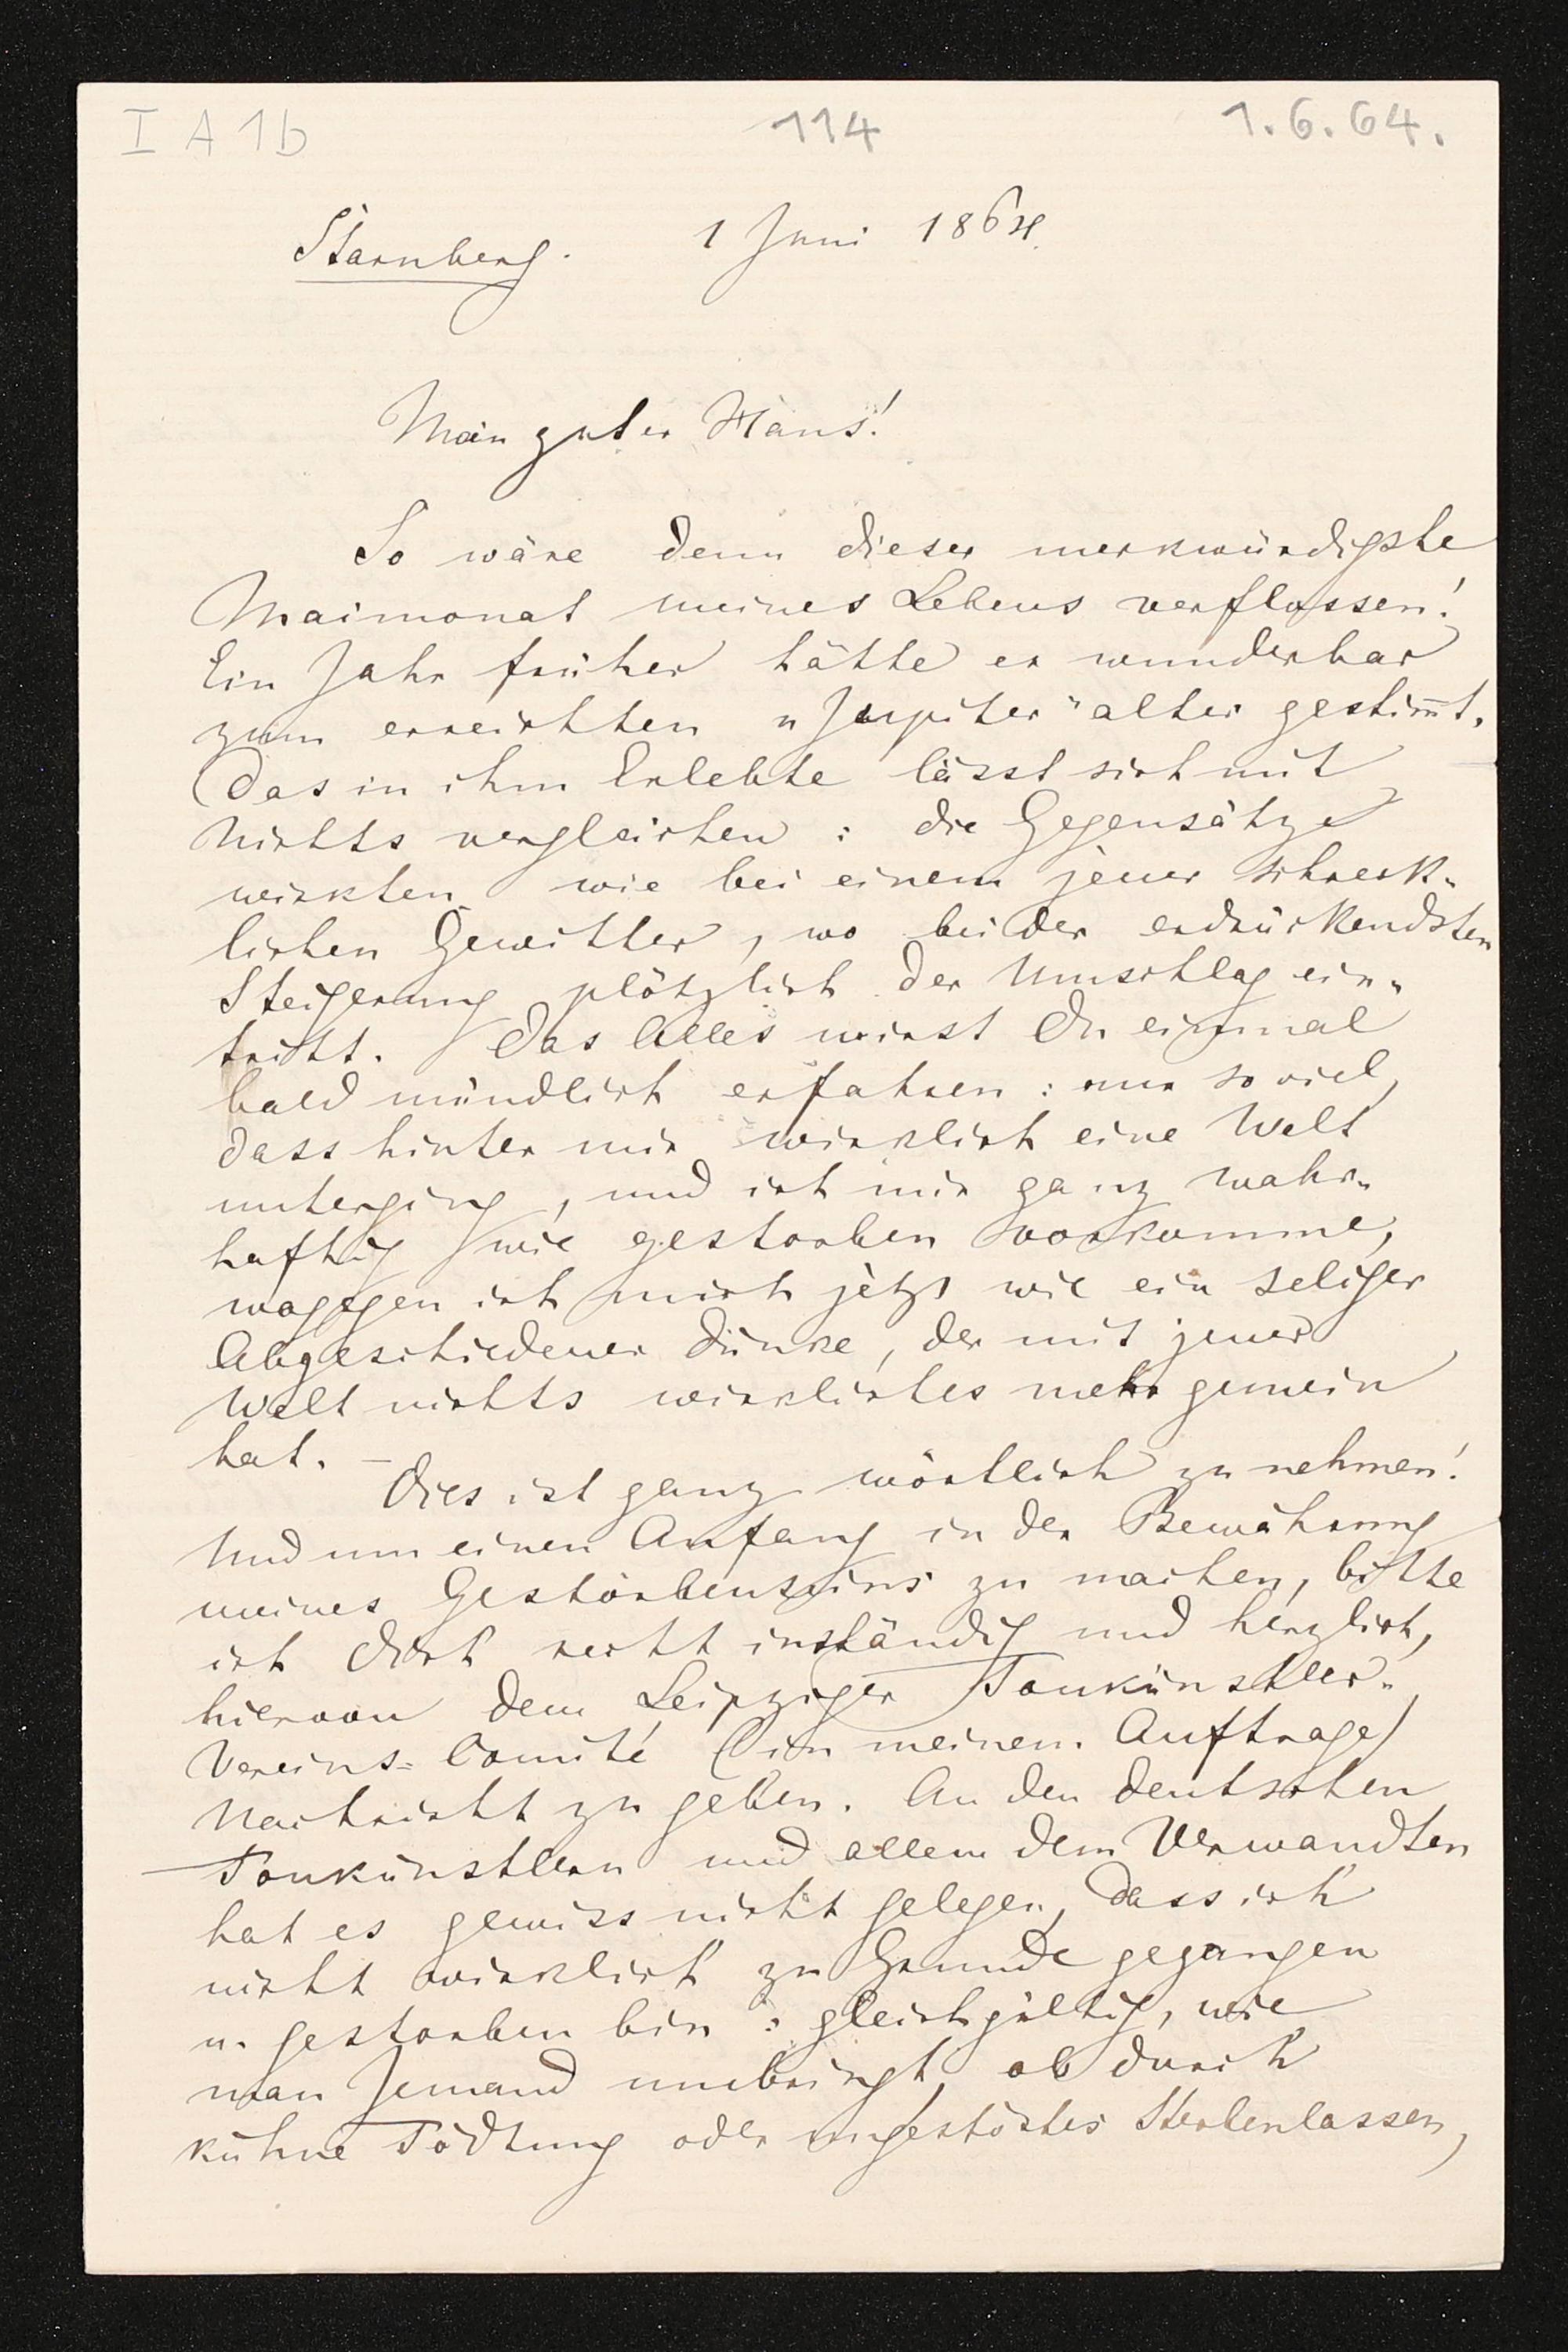 I A 1b 114 1.6.64.
Starnberg. 1 Juni 1864.
Mein guter Hans!
So wäre denn dieser merkwürdigste
Maimonat meines Lebens verflossen!
Ein Jahr früher hätte er wunderbar
zum erreichten "Jupiter" alter gestim̅t.
Das in ihm Erlebte lässt sich mit
Nichts vergleichen: die Gegensätze
wirkten wie bei einem jener schreck-
lichen Gewitter, wo bei der erdrückendsten
Steigerung plötzlich der Umschlag ein-
tritt. Das Alles wirst Du einmal
bald mündlich erfahren: nur so viel,
dass hinter mir wirklich eine Welt
unterging, und ich mir ganz wahr-
haftig wie gestorben vorkomme,
wogegen ich mich jetzt wie ein seliger
Abgeschiedener dünke, der mit jener
Welt nichts wirkliches mehr gemein
hat. –
Dies ist ganz wörtlich zu nehmen!
Und um einen Anfang in der Bewährung
meines Gestorbenseins zu machen, bitte
ich Dich recht inständig und herzlich,
hiervon dem Leipziger Tonkünstler-
Vereins-Comité (in meinem Auftrage)
Nachricht zu geben. An den deutschen
Tonkünstlern und allem dem Verwandten
hat es gewiss nicht gelegen, dass ich
nicht wirklich zu Grunde gegangen
u. gestorben bin: gleichgültig, wie
man Jemand umbringt, ob durch
kühne Tödtung oder ungestörtes Sterbenlassen,